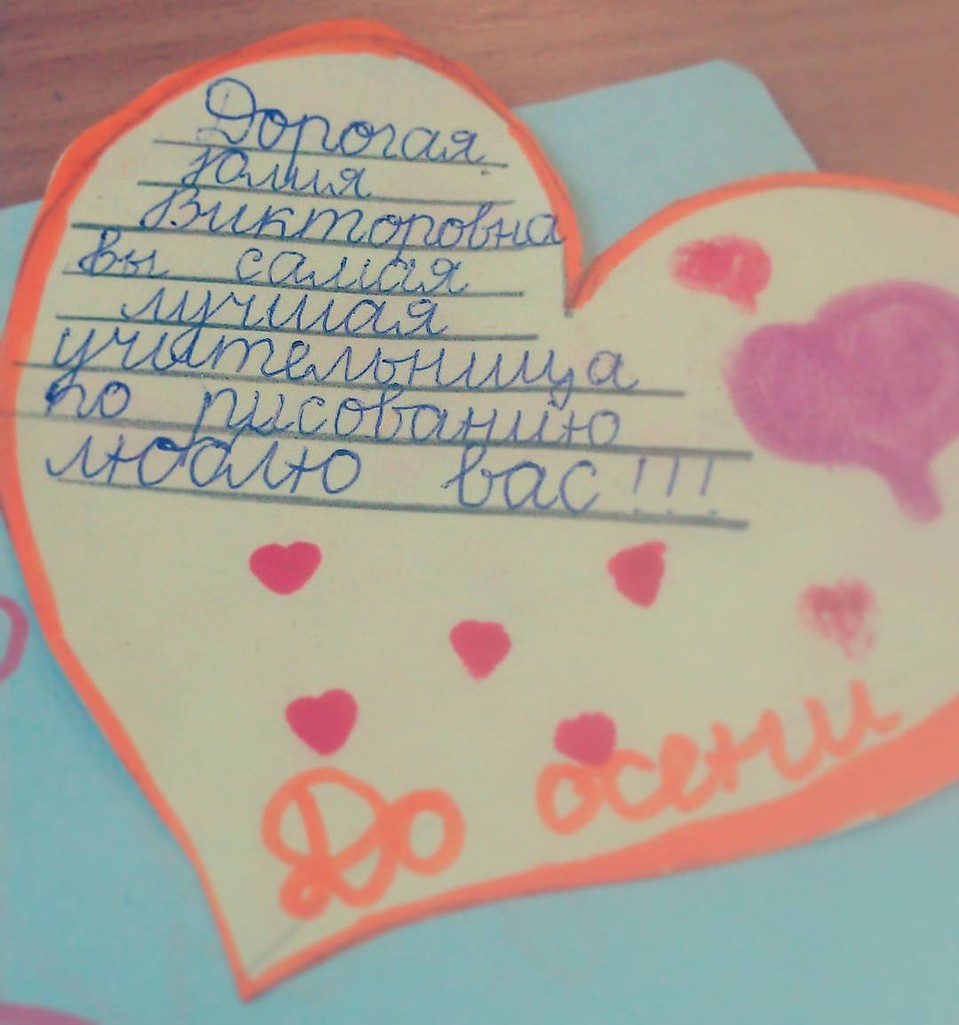 Дорогая
Юлия
Викторовна
вы самая
лучшая
учительница
по рисованию
люблю вас!!!
До осени